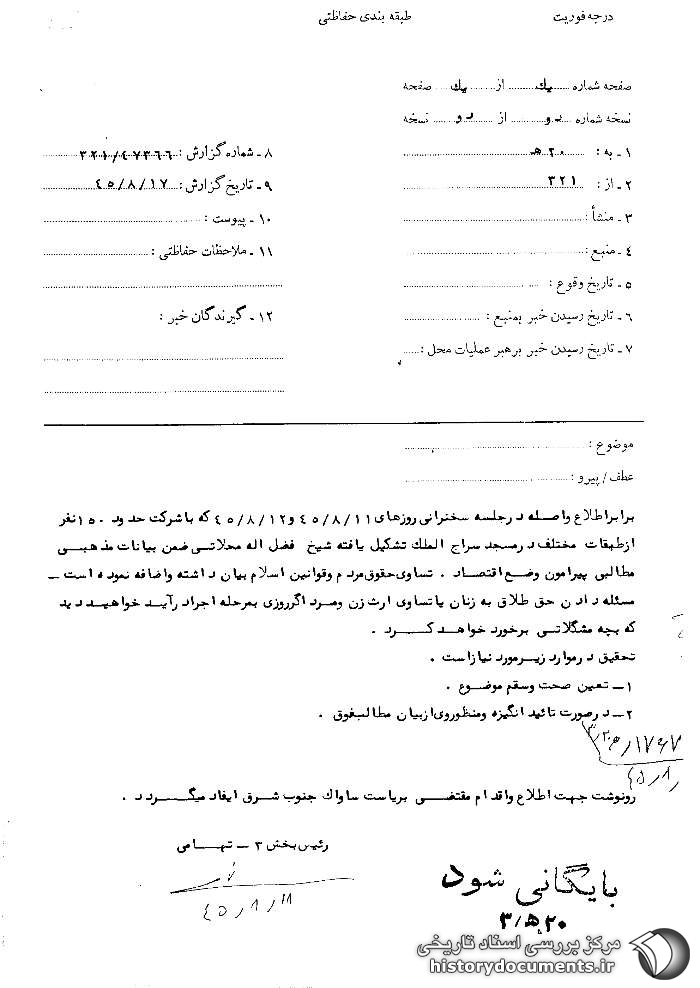 درجه فوریت
طبقه بندی حفاظتی
صفحه شماره یك از یك صفحه
نسخه شماره دو از دو نسخه
۱ - به : ۲۰ ه‍
۲ - از : ۳۲۱
۳ - منشأ :
۴ - منبع :
۵ - تاریخ وقوع :
۶ - تاریخ رسیدن خبر بمنبع :
۷ - تاریخ رسیدن خبر برهبر عملیات محل :
۸ - شماره گزارش : ۳۲۱/۴۷۳۶۶
۹ - تاریخ گزارش : ۴۵/۸/۱۷
۱۰ - پیوست :
۱۱ - ملاحظات حفاظتی :
۱۲ - گیرندگان خبر :
موضوع :
عطف / پیرو :
برابر اطلاع واصله در جلسه سخنرانی روزهای ۴۵/۸/۱۱ و ۴۵/۸/۱۲ که با شرکت حدود ۱۵۰ نفر
از طبقات مختلف در مسجد سراج الملك تشکیل یافته شیخ فضل اله محلاتی ضمن بیانات مذهبی
مطالبی پیرامون وضع اقتصاد . تساوی حقوق مردم وقوانین اسلام بیان داشته واضافه نموده است ـ
مسئله دادن حق طلاق به زنان یا تساوی ارث زن ومرد اگر روزی بمرحله اجرا درآید خواهید دید
که بچه مشگلاتی برخورد خواهد کرد .
تحقیق در موارد زیر مورد نیاز است .
۱ ـ تعین صحت وسقم موضوع .
۲ ـ در صورت تائید انگیزه ومنظور وی از بیان مطالب فوق .
رونوشت جهت اطلاع واقدام مقتضی بریاست ساواك جنوب شرق ایفاد میگردد .
رئیس بخش ۳ ـ تهامی
بایگانی شود
۲۰ ه‍ ۳
مرکز بررسی اسناد تاریخی
historydocuments.ir